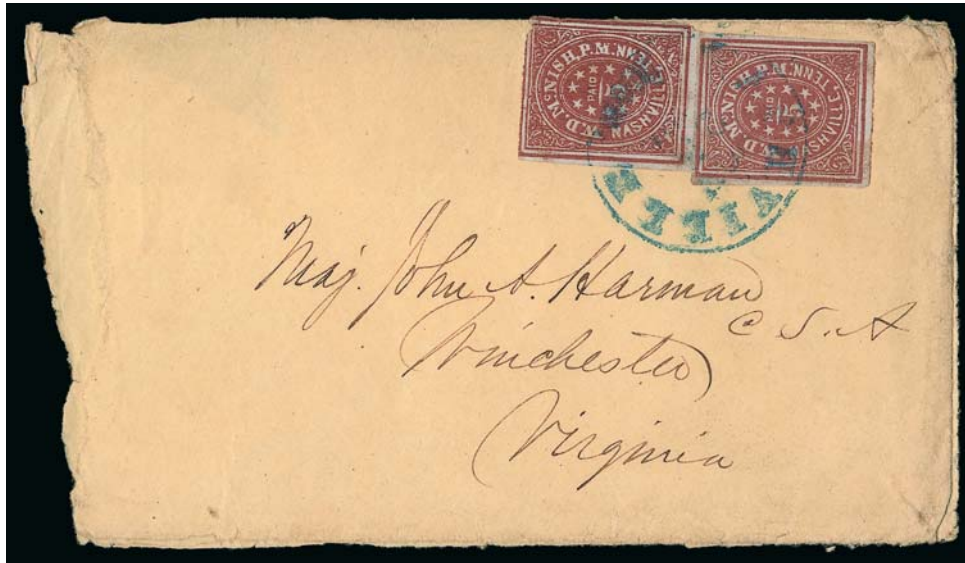 W.D. McNISH, P.M. NASHVILLE, TENN.
PAID
5
W.D. McNISH, P.M. NASHVILLE, TENN.
PAID
5
VILLE
Maj. John A. Harman
C. S. A
Winchester
Virginia